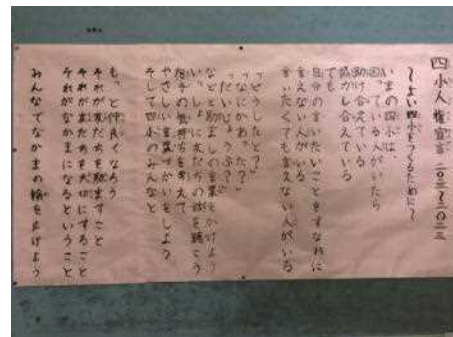 四小人権宣言 二〇二二〜二〇二三
〜よい四小をつくるために〜
いまの四小は、
困っている人がいたら
助け合えている
協力し合えている
でも
自分の言いたいことをすなおに
言えない人がいる
言いたくても言えない人がいる
「どうしたと？」
「なにかあった？」
「だいじょうぶ？」
などと励ましの言葉をかけよう
いっしょに友だちの話を聴こう
相手の気持ちを考えて
やさしい言葉づかいをしよう
そして四小のみんなと
もっと仲良くなろう
それが友だちを励ますこと
それが友だちを大切にすること
それがなかまになるということ
みんなでなかまの輪を広げよう